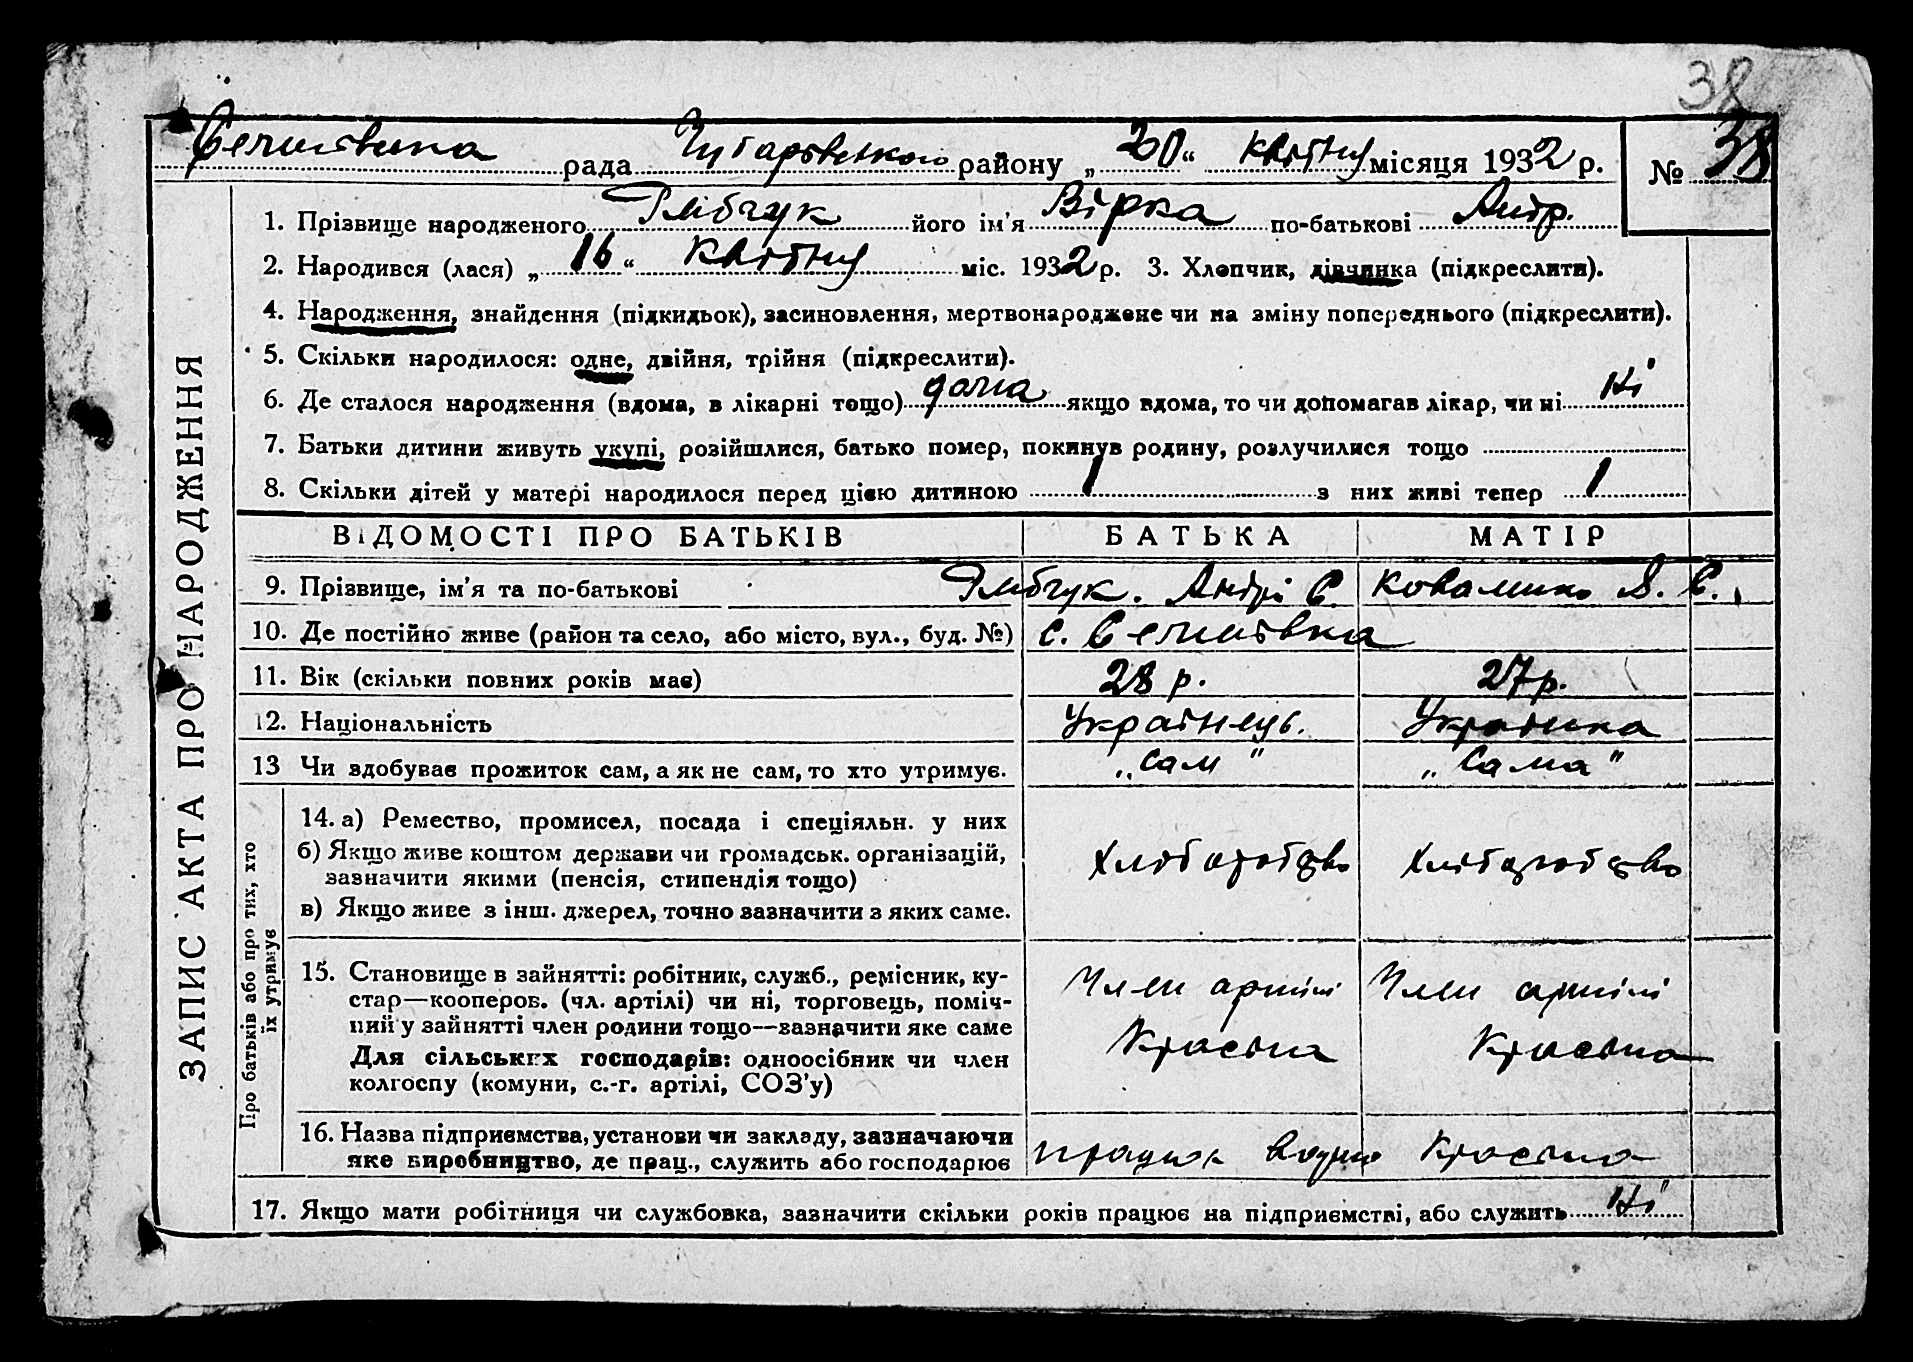 38
Селиївська рада Чубарівського району „20“ квітня місяця 1932 р. № 38
ЗАПИС АКТА ПРО НАРОДЖЕННЯ
1. Прізвище народженого Глібчук його ім'я Вірка по-батькові Андр.
2. Народився (лася) „16“ квітня міс. 1932 р. 3. Хлопчик, дівчинка (підкреслити).
4. Народження, знайдення (підкидьок), засиновлення, мертвонароджене чи на зміну попереднього (підкреслити).
5. Скільки народилося: одне, двійня, трійня (підкреслити).
6. Де сталося народження (вдома, в лікарні тощо) дома якщо вдома, то чи допомагав лікар, чи ні Ні
7. Батьки дитини живуть укупі, розійшлися, батько помер, покинув родину, розлучилися тощо
8. Скільки дітей у матері народилося перед цією дитиною 1 з них живі тепер 1
ВІДОМОСТІ ПРО БАТЬКІВ БАТЬКА МАТІР
9. Прізвище, ім'я та по-батькові Глібчук. Андрі С.
10. Де постійно живе (район та село, або місто, вул., буд. №) с.
11. Вік (скільки повних років має) 28 р. 27 р.
12. Національність Українець. Українка
13 Чи здобуває прожиток сам, а як не сам, то хто утримує. „Сам“ „Сама“
Про батьків або про тих, хто їх утримує
14. а) Ремество, промисел, посада і спеціяльн. у них
б) Якщо живе коштом держави чи громадськ. організацій,
зазначити якими (пенсія, стипендія тощо)
в) Якщо живе з інш. джерел, точно зазначити з яких саме.
Хліборобство Хліборобство
15. Становище в зайнятті: робітник, служб., ремісник, ку-
стар—коопероб. (чл. артілі) чи ні, торговець, поміч-
ний у зайнятті член родини тощо—зазначити яке саме
Для сільських господарів: одноосібник чи член
колгоспу (комуни, с.-г. артілі, СОЗ'у)
Член артілі Член артілі
16. Назва підприємства, установи чи закладу, зазначаючи
яке виробництво, де прац., служить або господарює
17. Якщо мати робітниця чи службовка, зазначити скільки років працює на підприємстві, або служить Ні